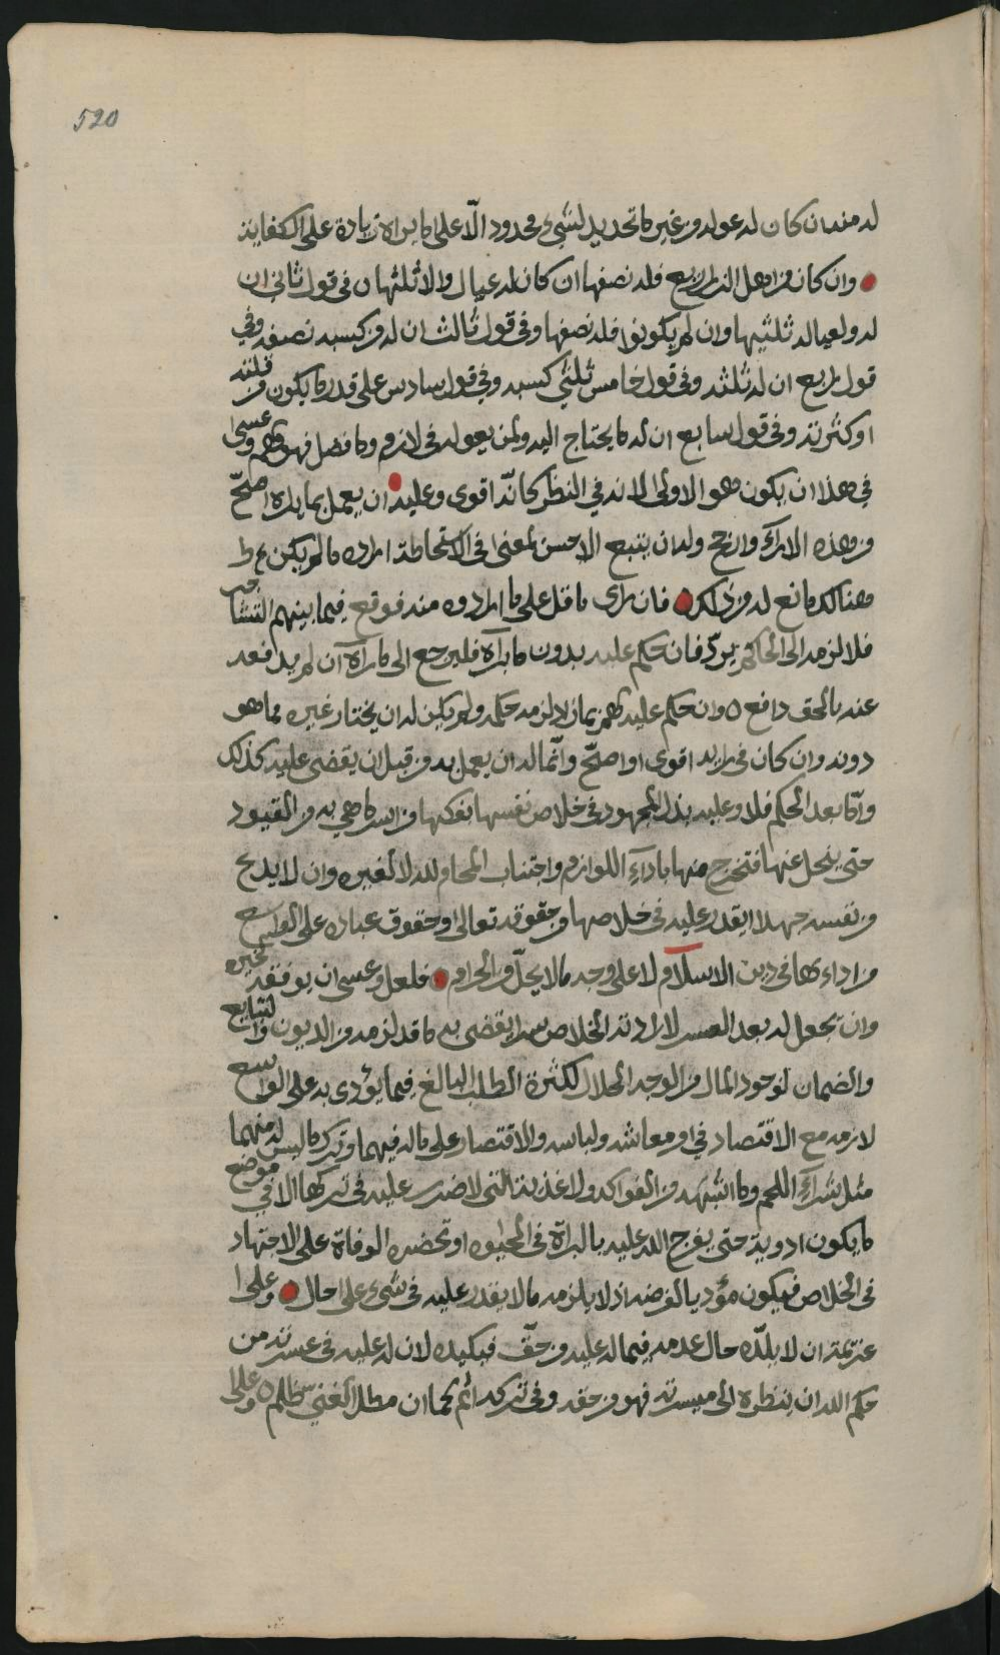 520
له منه ان كان له عوله من غير ما تحديد لشيء محدود الّا على ما يراه زيادة على الكفاية
وان كان من اهل الذراريع فله نصفها ان كان له عيال والا ثلثها وفى قول ثانى ان
له ولعياله ثلثيها وان لم يكونوا فله نصفها وفى قول ثالث ان له من كسبه نصفه وفي
قول رابع ان له ثلثه وفى قول خامس ثلثي كسبه وفي قول سادس على قدر ما يكون من قلته
او كثرته وفى قول سابع ان له ما يحتاج اليه ولمن يعوله فى لازم وما فضل فهو لهم وعسى
في هذا ان يكون هو الاولى لانه في النظر كانّه اقوى وعليه ان يعمل بما يراه اصلحّ
من هذه الاراء وارجح وله ان يتبع الاحسن لمعنى فى الاستحاطة اراده ما لم يكن
هنالك مانع له من ذلك فان راى ما قل على ما ارادوه منه فوقع فيما بينهم التشاجر
فلا لزمه الى الحاكم يردّ فان حكم عليه بدون ما يراه فليرجع الى ما رآه ان لم يدافعه
عنه بالحق دافع ٥ وان حكم عليه لهم بما زاد لزمه حكمه ولم يكن له ان يختار غيره مما هو
دونه وان كان فى رايه اقوى او اصلحّ وانّما له ان يعمل به من قبل ان يقضى عليه كذلك
وامّا بعد الحكم فلا وعليه بذل المجهود فى خلاص نفسها بفكها من اسر ما هي به من القيود
حتى ينحل عنها فتخرج منها باداء اللوازم واجتناب المحارم لله لا لغيره وان لا يدع
من نفسه جهدا يقدر عليه فى خلاصها من حقوقه تعالى وحقوق عباده على الواسع
من اداءها فى دين الاسلام لا على وجه ما لا يحلّ من الحرام فلعل وعسى ان يوفقه لخيره
وان يجعل له بعد العسر لارادته الخلاص يسرا يقضى به ما قد لزمه من الديون والتبايع
والضمان لوجود المال من الوجه الحلال لكثرة الطلب البالغ فيما يؤدى به على الواسع
لازمه مع الاقتصاد في امر معاشه ولباسه والاقتصار على ماله فيهما وترك ما ليس له منهما
مثل شراء اللحم وما اشبهه من الفواكه والاغذية التى لا ضرر عليه فى تركها الا في موضع
ما يكون ادوية حتى يفرج الله عليه بالبرأة فى المحيوه او تحضره الوفاة على الاجتهاد
فى الخلاص فيكون مؤديا لفرضه اذ لا يلزمه ما لا يقدر عليه فى شيء على حال وعلى
غريمه ان لا يلدّه حال عدمه فيما له عليه من حقّ فيكيده لان له عليه فى عسرته من
حكم الله ان ينظره الى ميسرته فهو من حقه وفى تركه اثم كما ان مطل الغني ظلم ٥ وعلى